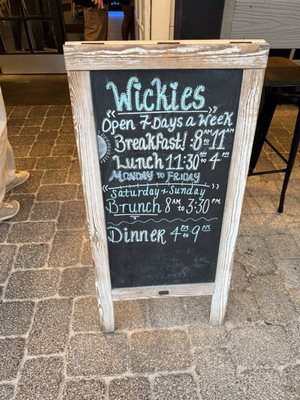 Wickies
Open 7 Days a Week
Breakfast! 8 AM - 11 AM
Lunch 11:30 AM - 4 PM
Monday to Friday
Saturday + Sunday
Brunch 8 AM to 3:30 PM
Dinner 4 PM to 9 PM